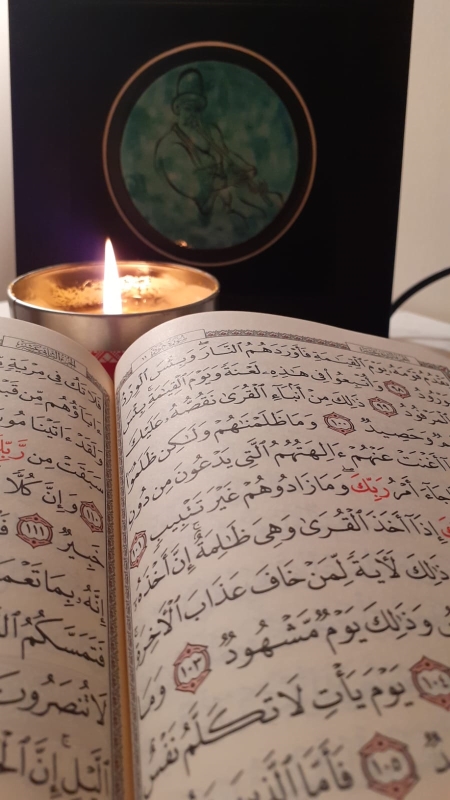 يَوْمَ ٱلْقِيَٰمَةِ فَأَوْرَدَهُمُ ٱلنَّارَ وَبِئْسَ ٱلْوِرْدُ
وَأُتْبِعُوا۟ فِى هَٰذِهِۦ لَعْنَةً وَيَوْمَ ٱلْقِيَٰمَةِ بِئْسَ
٩٩ ذَٰلِكَ مِنْ أَنۢبَآءِ ٱلْقُرَىٰ نَقُصُّهُۥ عَلَيْكَ
وَحَصِيدٌ ١٠٠ وَمَا ظَلَمْنَٰهُمْ وَلَٰكِن ظَلَمُوٓا۟
أَغْنَتْ عَنْهُمْ ءَالِهَتُهُمُ ٱلَّتِى يَدْعُونَ مِن دُونِ
جَآءَ أَمْرُ رَبِّكَ وَمَا زَادُوهُمْ غَيْرَ تَتْبِيبٍ ١٠١
إِذَآ أَخَذَ ٱلْقُرَىٰ وَهِىَ ظَٰلِمَةٌ إِنَّ أَخْذَهُۥٓ
ذَٰلِكَ لَءَايَةً لِّمَنْ خَافَ عَذَابَ ٱلْءَاخِرَةِ
وَذَٰلِكَ يَوْمٌ مَّشْهُودٌ ١٠٣ وَمَا
١٠٤ يَوْمَ يَأْتِ لَا تَكَلَّمُ نَفْسٌ
١٠٥ فَأَمَّا ٱلَّذِينَ
تَكُ فِى مِرْيَةٍ
ءَابَآؤُهُم مِّن
وَلَقَدْ ءَاتَيْنَا
سَبَقَتْ مِن رَّبِّكَ
١١٠ وَإِنَّ كُلًّا
خَبِيرٌ ١١١
إِنَّهُۥ بِمَا
فَتَمَسَّكُمُ
لَا تُنصَرُونَ
ٱلَّيْلِ إِنَّ